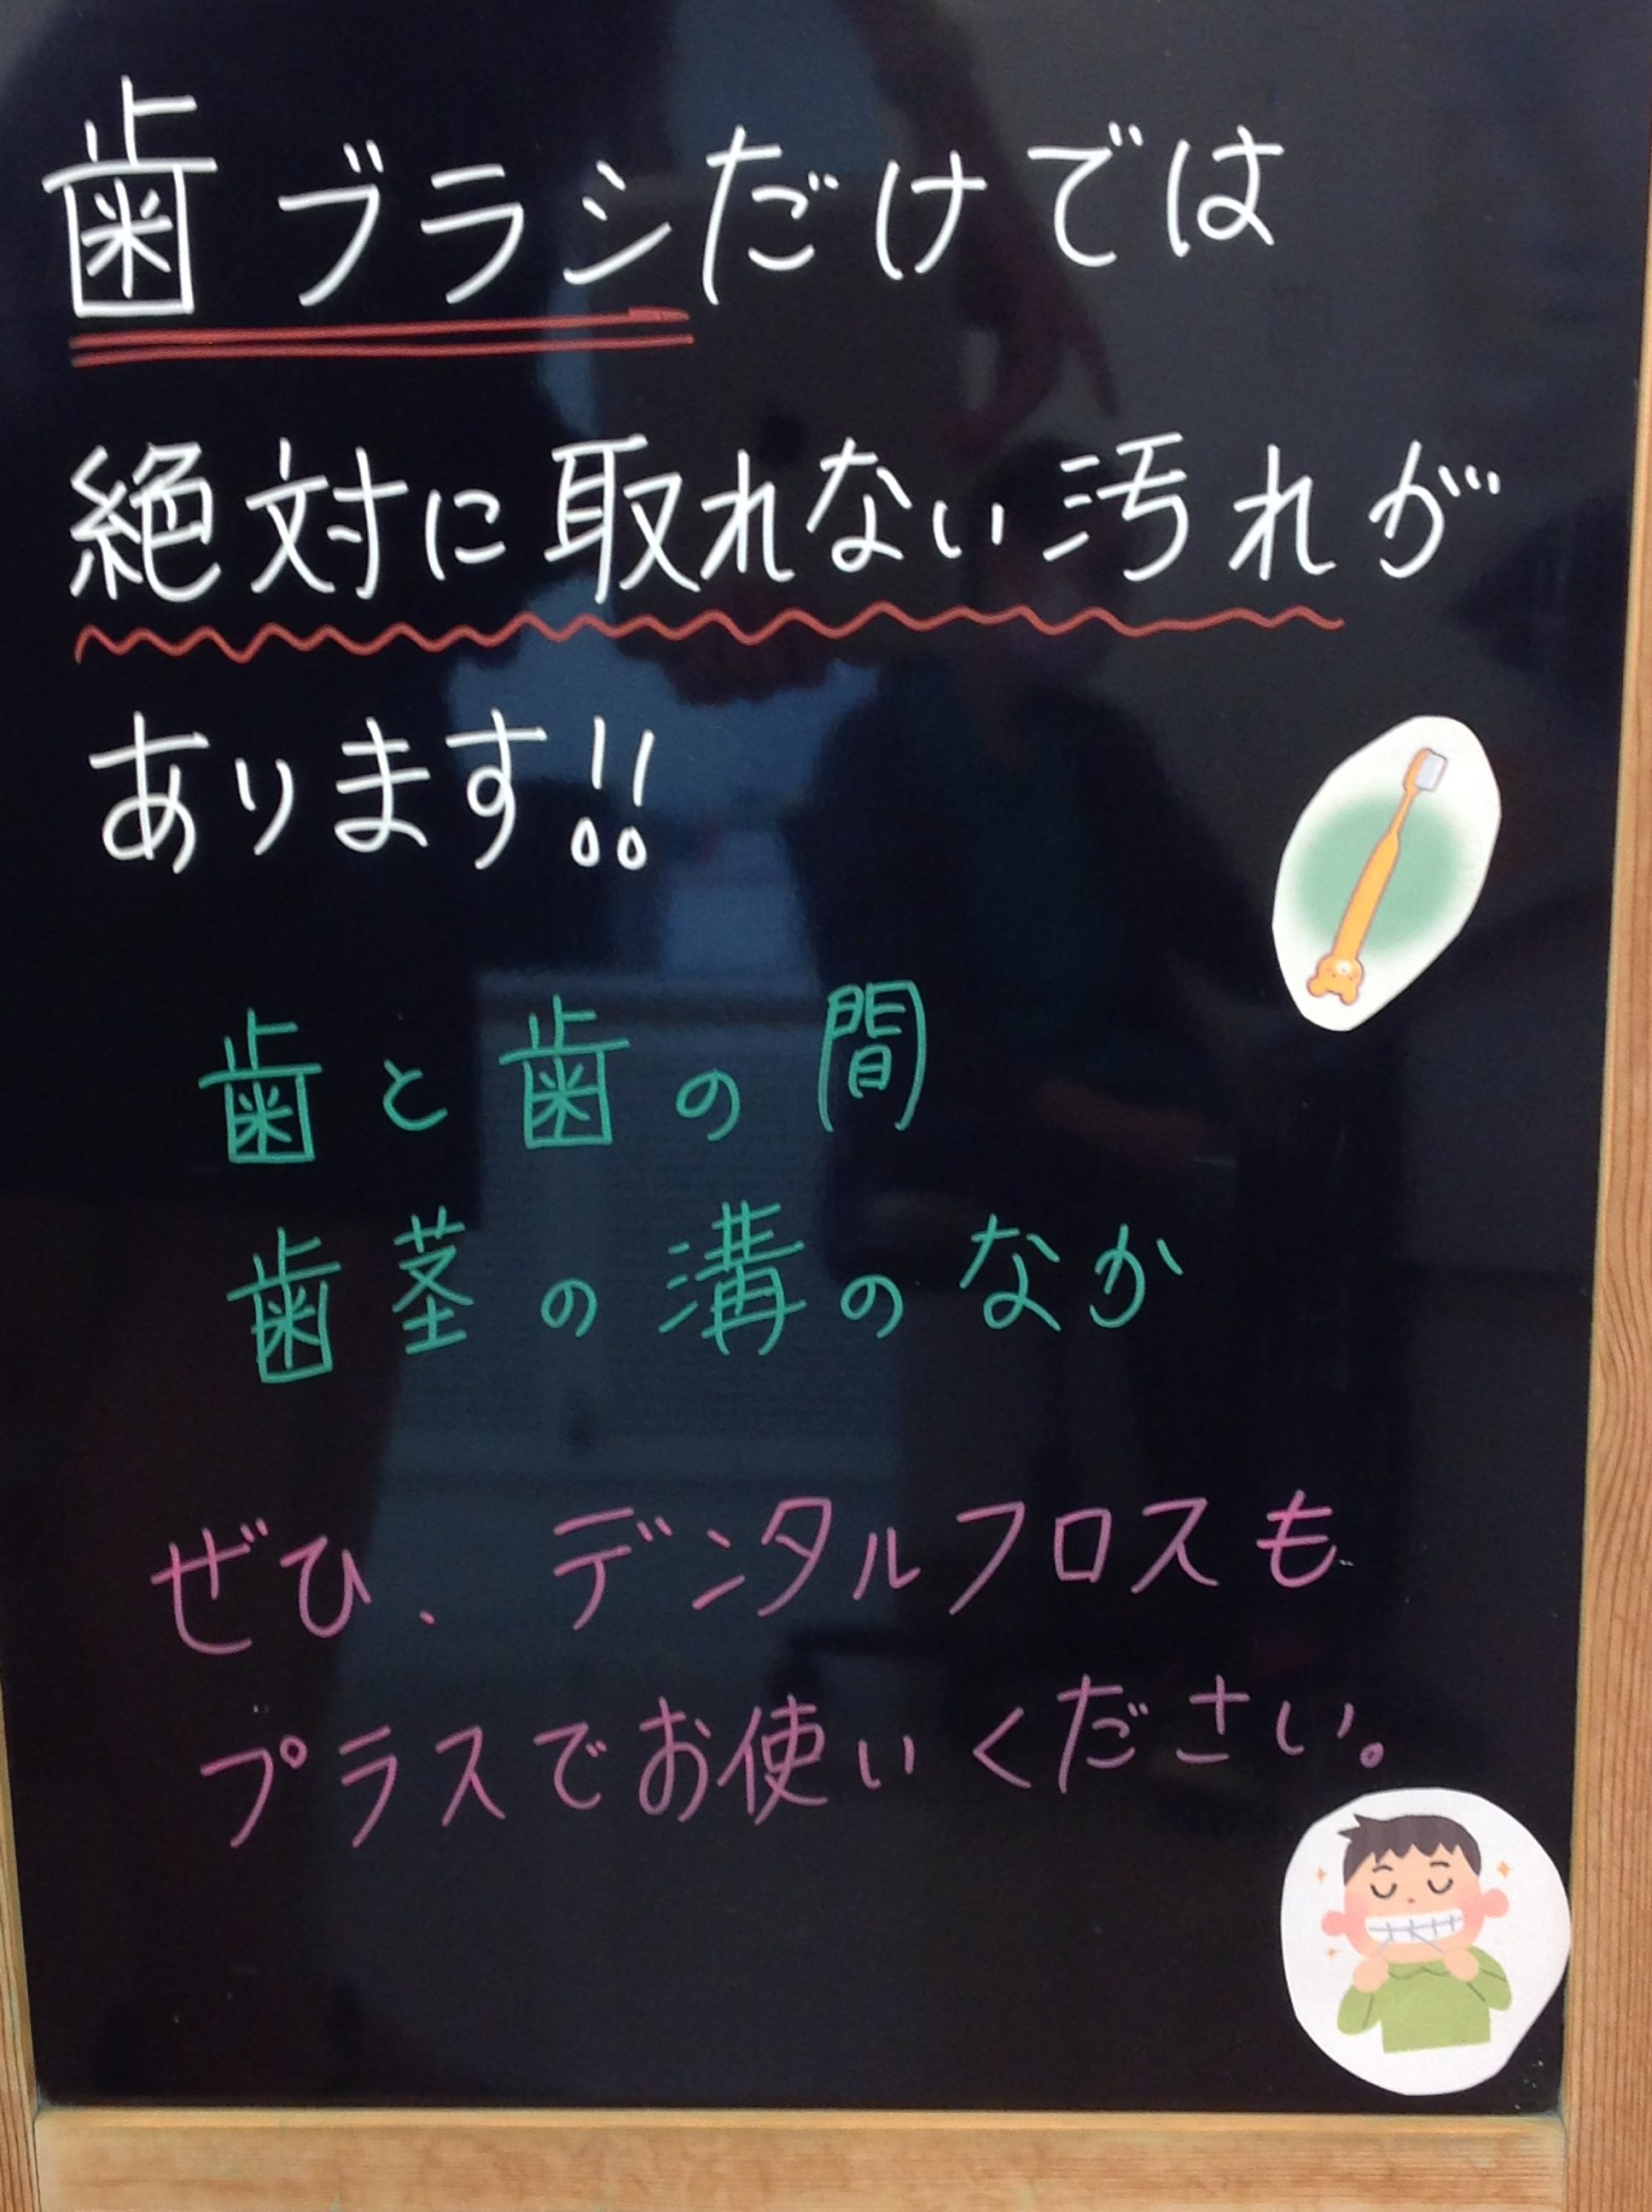 歯ブラシだけでは
絶対に取れない汚れが
あります!!
歯と歯の間
歯茎の溝のなか
ぜひ、デンタルフロスも
プラスでお使いください。